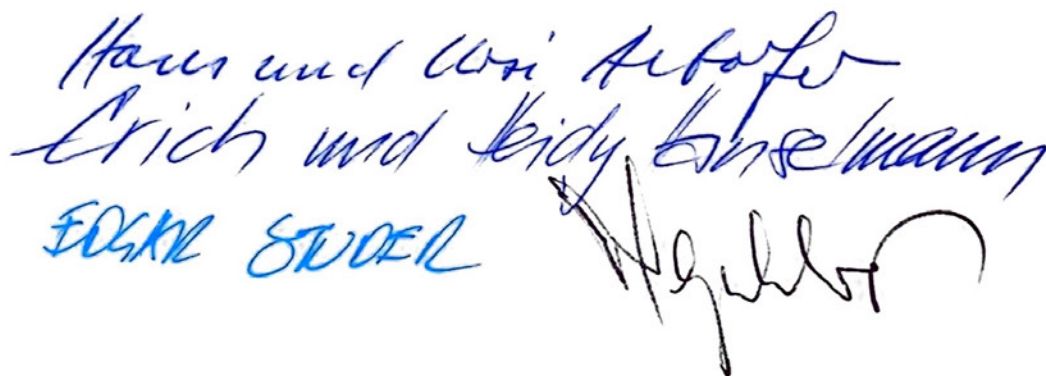 Hans und Ursi
Erich und Heidy Hinselmann
EDGAR STUDER